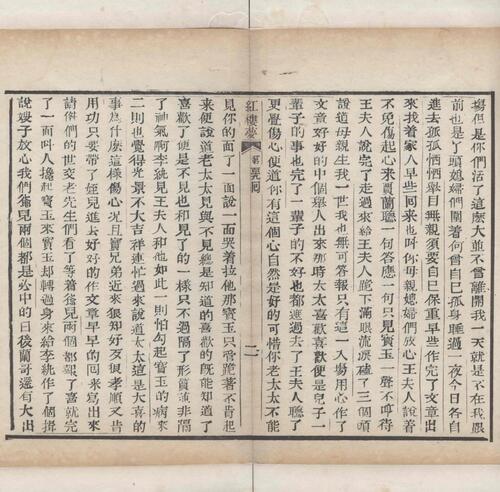 場但是你們活了這麽大並不曾離開我一天就是不在我眼
前也是丫頭媳婦們圍着何曾自己孤身睡過一夜今日各自
進去孤孤恓恓舉目無親須要自己保重早些作完了文章出
來找着家人早些回來也叫你母親媳婦們放心王夫人說着
不免傷起心來賈蘭聽一句答應一句只見寶玉一聲不哼待
王夫人說完了走過來給王夫人跪下滿眼流淚磕了三個頭
說道母親生我一世我也無可答報只有這一入場用心作了
文章好好的中個舉人出來那時太太喜歡喜歡便是兒子一
輩子的事也完了一輩子的不好也都遮過去了王夫人聽了
更覺傷心便道你有這個心自然是好的可惜你老太太不能
紅樓夢 第 回 二
見你的面了一面說一面哭着拉他那寶玉只管跪着不肯起
來便說道老太太見與不見總是知道的喜歡的既能知道了
喜歡了便是不見也和見了的一樣只不過隔了形質並非隔
了神氣啊李紈見王夫人和他如此一則怕勾起寶玉的病來
二則也覺得光景不大吉祥連忙過來說道太太這是大喜的
事爲什麽這樣傷心况且寶兄弟近來狠知好歹狠孝順又肯
用功只要帶了姪兒進去好好的作文章早早的回來寫出來
請偺們的世交老先生們看了等着爺兒兩個都報了喜就完
了一面叫人攙起寶玉來寶玉却轉過身來給李紈作了個揖
說嫂子放心我們爺兒兩個都是必中的日後蘭哥還有大出